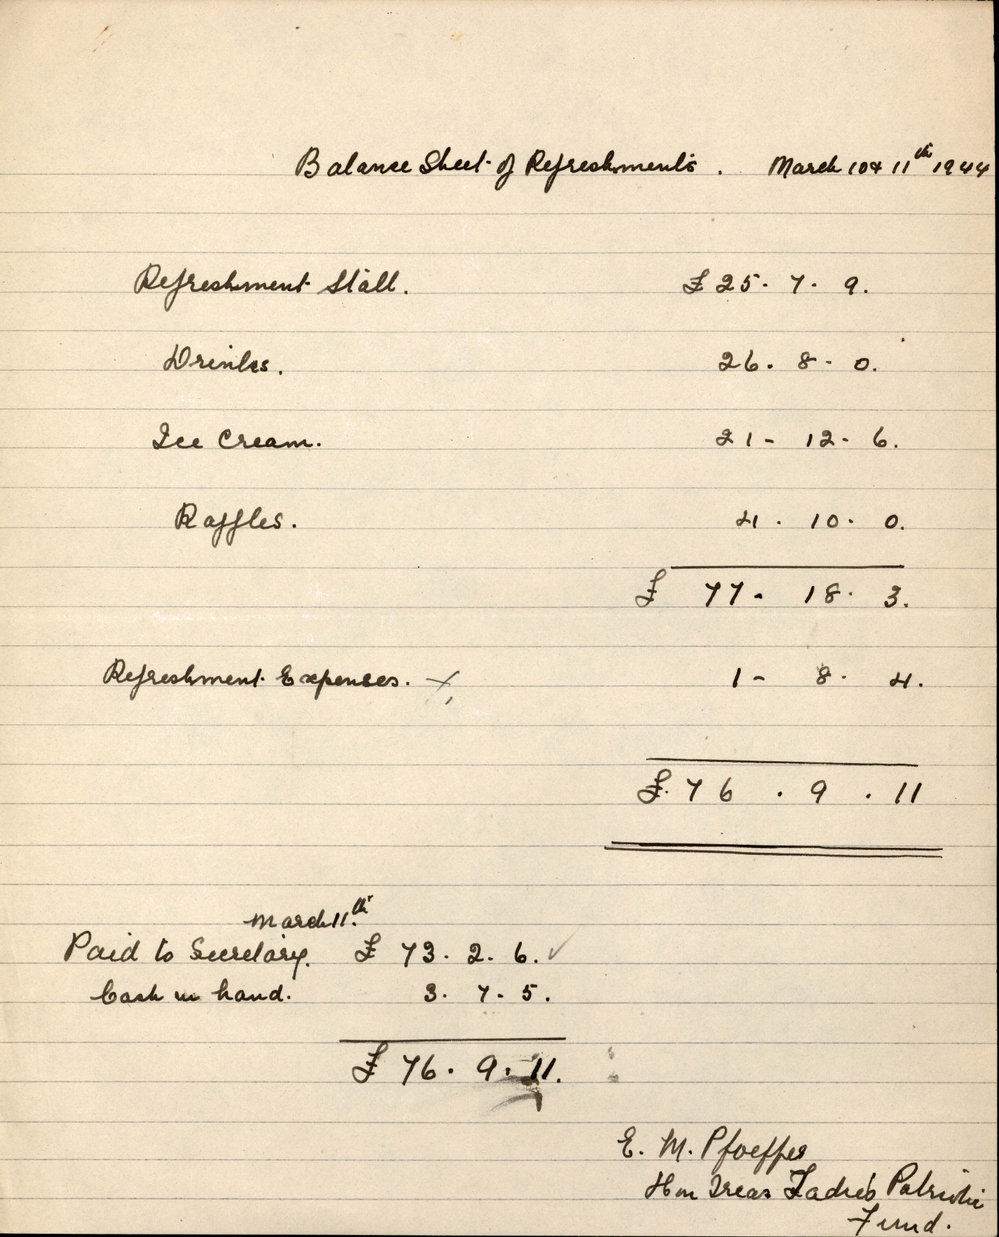 Balance Sheet of Refreshments. March 10 & 11th 1944
Refreshment Stall. £ 25. 7. 9.
Drinks. 26. 8. 0.
Ice Cream. 21 - 12 - 6.
Raffles. 4. 10. 0.
£ 77 - 18. 3.
Refreshment Expenses. 1 - 8. 4.
£. 76. 9. 11
March 11th.
Paid to Secretary. £ 73. 2. 6. ✓
Cash in hand. 3. 7. 5.
£ 76. 9. 11.
E. M. Pfoeffer
Hon Treas Ladies Patriotic
Fund.